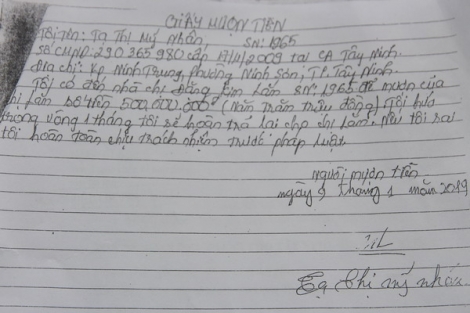 GIẤY MƯỢN TIỀN
Tôi tên: Tạ Thị Mỹ Nhân SN: 1965
Số CMND: 290 365 980 cấp 17/11/2009 tại CA Tây Ninh
Địa chỉ: Kp Ninh Trung, phường Ninh Sơn, TP. Tây Ninh.
Tôi có đến nhà chị Đặng Kim Lắm SN: 1965 để mượn của
chị Lắm số tiền 500,000,000đ (Năm Trăm Triệu đồng) Tôi hứa
trong vòng 1 tháng tôi sẽ hoàn trả lại cho chị Lắm, nếu tôi sai
tôi hoàn toàn chịu trách nhiệm trước pháp luật
Người mượn tiền
ngày 9 tháng 1 năm 2019
Tạ Thị Mỹ Nhân